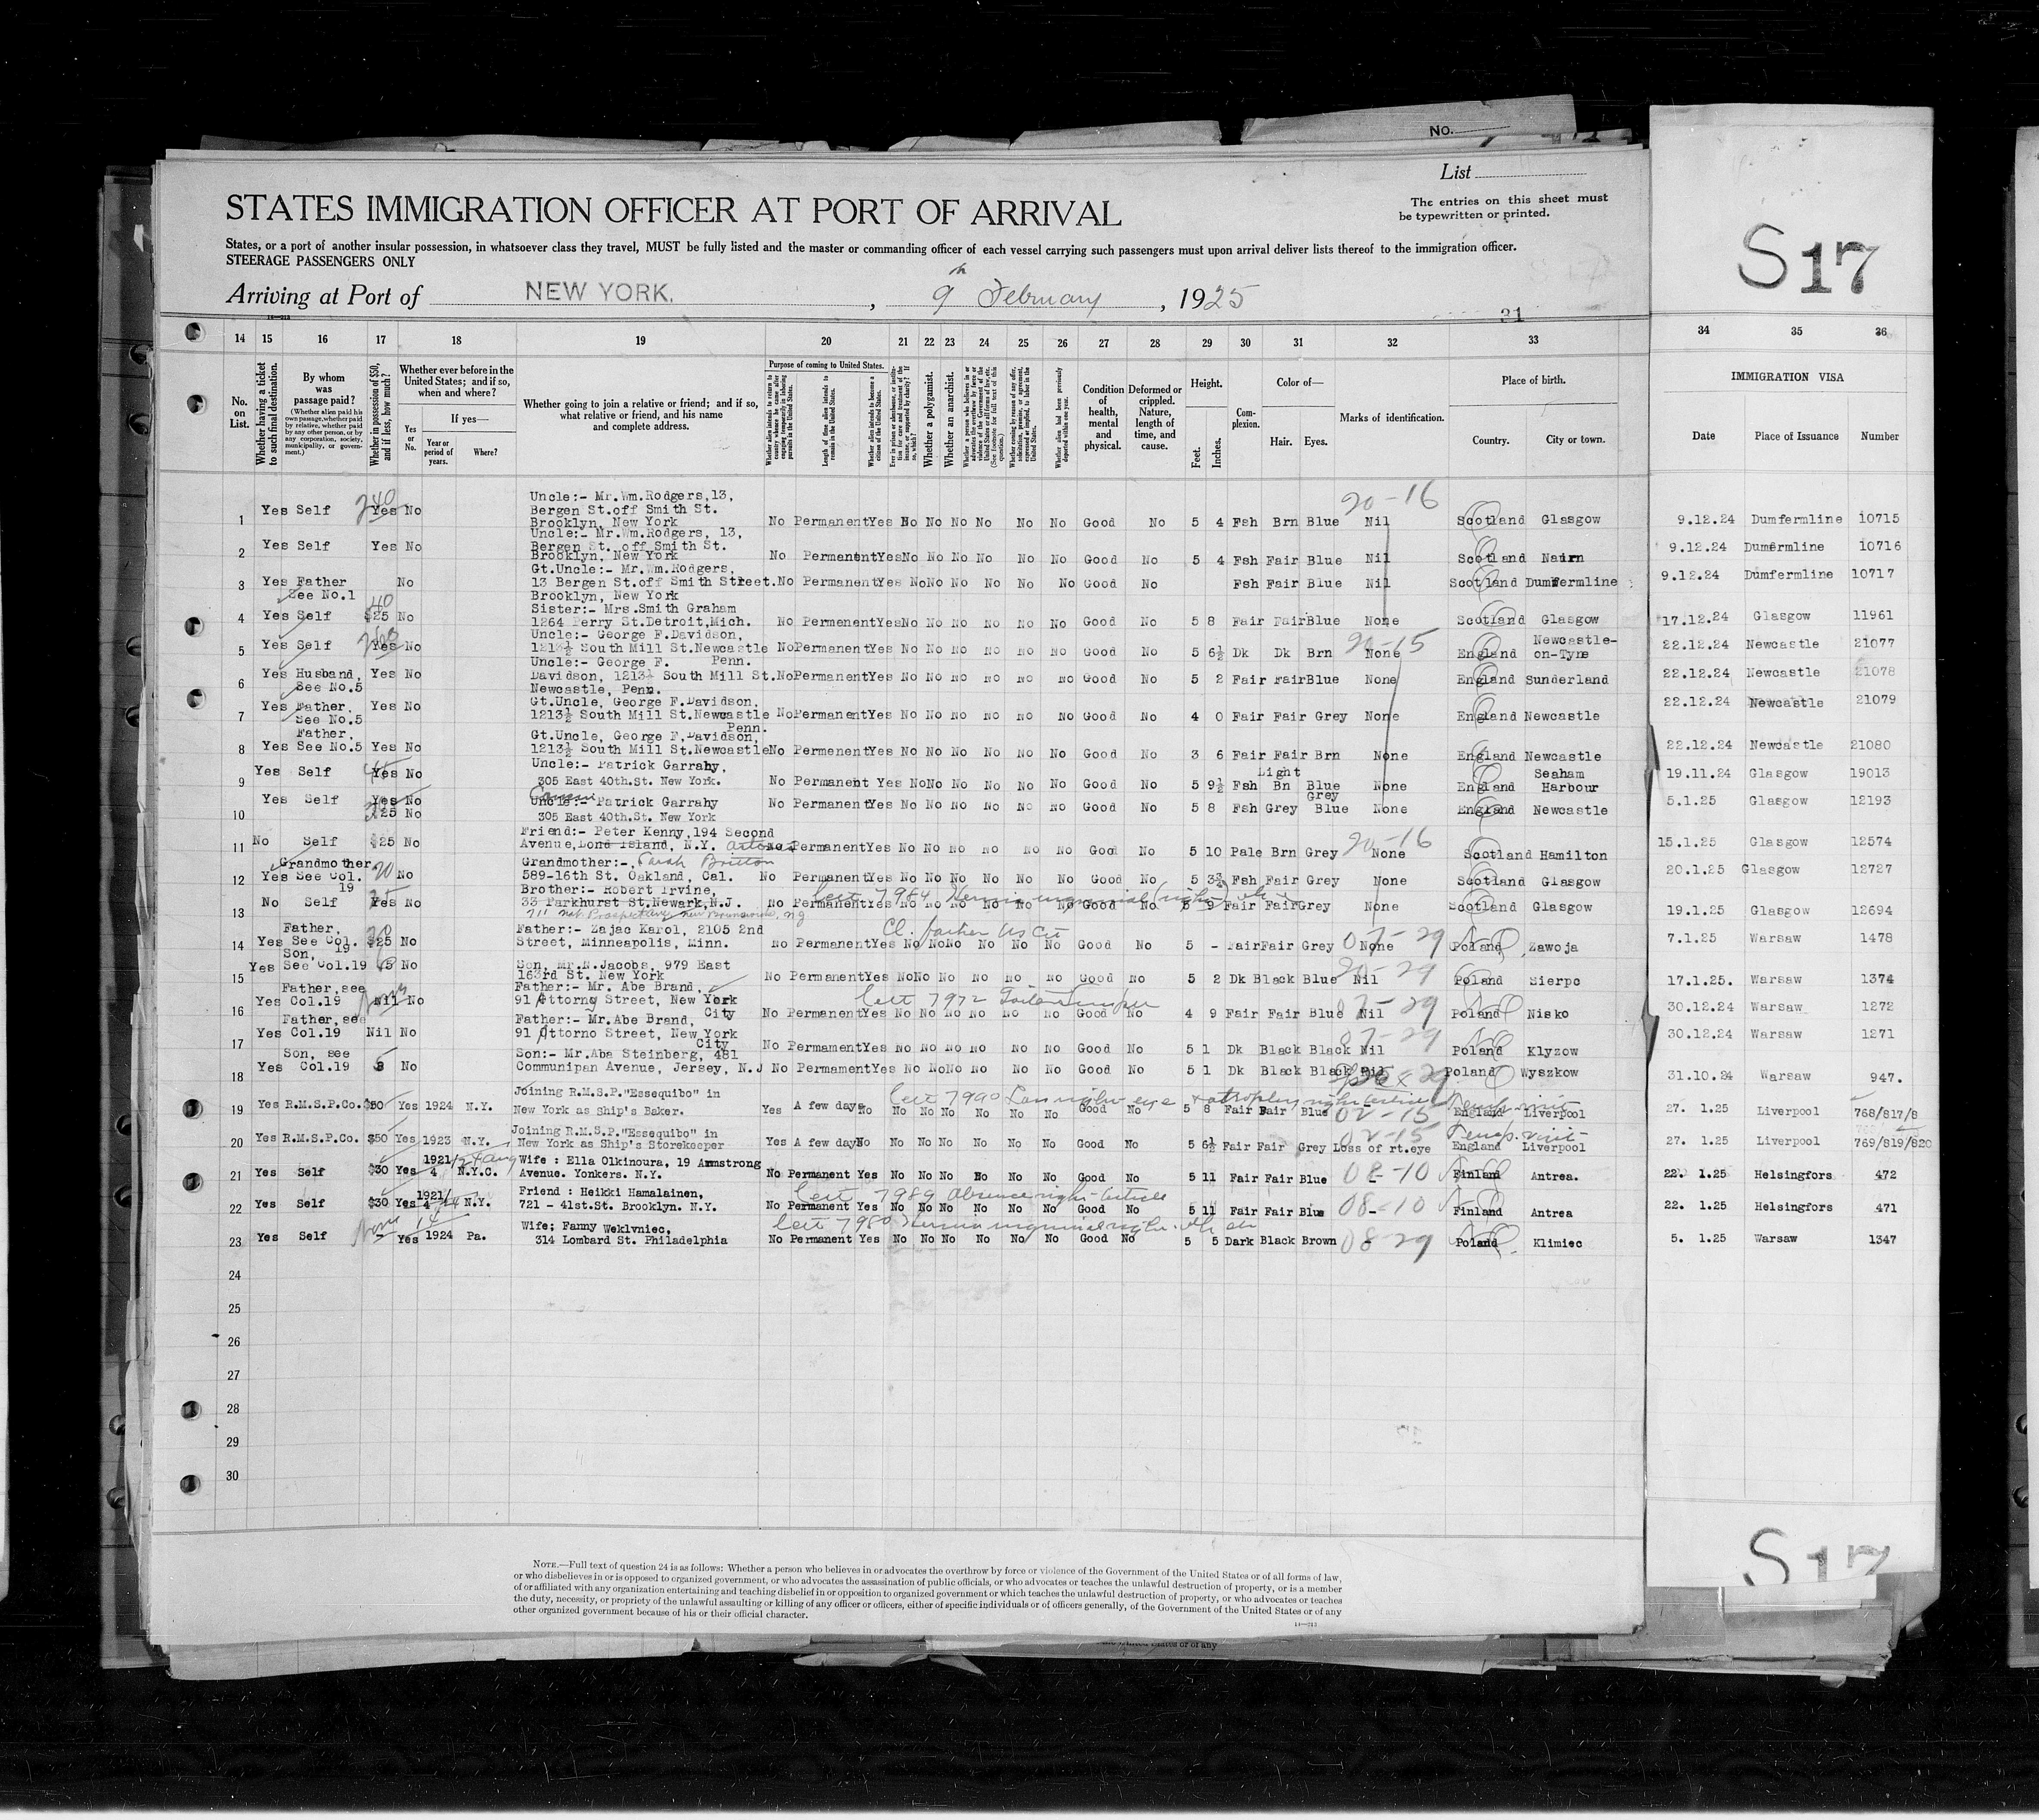 No.
List
The entries on this sheet must
be typewritten or printed.
STATES IMMIGRATION OFFICER AT PORT OF ARRIVAL
States, or a port of another insular possession, in whatsoever class they travel, MUST be fully listed and the master or commanding officer of each vessel carrying such passengers must upon arrival deliver lists thereof to the immigration officer.
STEERAGE PASSENGERS ONLY
Arriving at Port of NEW YORK. , 9th February , 1925
S17
14 15 16 17 18 19 20 21 22 23 24 25 26 27 28 29 30 31 32 33 34 35 36
No. on List.
Whether having a ticket to such final destination.
By whom was passage paid?
(Whether alien paid his own passage, whether paid by relative, whether paid by any other person, or by any corporation, society, municipality, or government.)
Whether in possession of $50, and if less, how much?
Whether ever before in the United States; and if so, when and where?
Yes or No.
If yes—
Year or period of years.
Where?
Whether going to join a relative or friend; and if so, what relative or friend, and his name and complete address.
Purpose of coming to United States.
Length of time alien intends to remain in the United States.
Whether alien intends to become a citizen of the United States.
Whether a polygamist.
Whether an anarchist.
Condition of health, mental and physical.
Deformed or crippled. Nature, length of time, and cause.
Height.
Feet. Inches.
Complexion.
Color of—
Hair. Eyes.
Marks of identification.
Place of birth.
Country. City or town.
IMMIGRATION VISA
Date Place of Issuance Number
Uncle:- Mr.Wm.Rodgers,13,
Bergen St.off Smith St.
Brooklyn, New York
1 Yes Self 240 Yes No No Permanent Yes No No No No No No Good No 5 4 Fsh Brn Blue 20-16 Nil Scotland Glasgow 9.12.24 Dumfermline 10715
Uncle:- Mr.Wm.Rodgers, 13,
Bergen St. off Smith St.
Brooklyn, New York
2 Yes Self Yes No No Permanent Yes No No No No No No Good No 5 4 Fsh Fair Blue Nil Scotland Nairn 9.12.24 Dumermline 10716
Gt.Uncle:- Mr.Wm.Rodgers,
13 Bergen St.off Smith Street.
Brooklyn, New York
3 Yes Father See No.1 No No Permanent Yes No No No No No No Good No Fsh Fair Blue Nil Scotland Dumfermline 9.12.24 Dumfermline 10717
Sister:- Mrs.Smith Graham
1264 Perry St.Detroit,Mich.
4 Yes Self 40 $25 No No Permenent Yes No No No No No No Good No 5 8 Fair Fair Blue None Scotland Glasgow 17.12.24 Glasgow 11961
Uncle:- George F.Davidson,
1213½ South Mill St.Newcastle
Penn.
5 Yes Self Yes No No Permanent Yes No No No No No No Good No 5 6½ Dk Dk Brn 20-15 None England Newcastle-on-Tyne 22.12.24 Newcastle 21077
Uncle:- George F.
Davidson, 1213½ South Mill St.
Newcastle, Penn.
6 Yes Husband, See No.5 Yes No No Permanent Yes No No No No No No Good No 5 2 Fair Fair Blue None England Sunderland 22.12.24 Newcastle 21078
Gt.Uncle, George F.Davidson,
1213½ South Mill St.Newcastle
Penn.
7 Yes Father, See No.5 Yes No No Permanent Yes No No No No No No Good No 4 0 Fair Fair Grey None England Newcastle 22.12.24 Newcastle 21079
Gt.Uncle, George F.Davidson,
1213½ South Mill St.Newcastle
8 Yes Father, See No.5 Yes No No Permenent Yes No No No No No No Good No 3 6 Fair Fair Brn None England Newcastle 22.12.24 Newcastle 21080
Uncle:- Patrick Garrahy,
305 East 40th.St. New York.
9 Yes Self Yes No No Permanent Yes No No No No No No Good No 5 9½ Fsh Light Bn Blue None England Seaham Harbour 19.11.24 Glasgow 19013
Uncle:- Patrick Garrahy
305 East 40th.St. New York
10 Yes Self Yes No $25 No No Permanent Yes No No No No No No Good No 5 8 Fsh Grey Grey Blue None England Newcastle 5.1.25 Glasgow 12193
Friend:- Peter Kenny,194 Second
Avenue,Lond Island, N.Y.
11 No Self $25 No No Permanent Yes No No No No No No Good No 5 10 Pale Brn Grey 20-16 None Scotland Hamilton 15.1.25 Glasgow 12574
Grandmother:-, Sarah Britton
589-16th St. Oakland, Cal.
12 Yes Grandmother See Col. 19 20 No No Permanent Yes No No No No No No Good No 5 3¾ Fsh Fair Grey None Scotland Glasgow 20.1.25 Glasgow 12727
Brother:- Robert Irvine,
33 Parkhurst St.Newark,N.J.
Cert 7984 Hernia inguinal (right)
13 No Self Yes No No Permanent Yes No No No No No No Good No 5 9 Fair Fair Grey None Scotland Glasgow 19.1.25 Glasgow 12694
Father:- Zajac Karol, 2105 2nd
Street, Minneapolis, Minn.
Cl. father US Cit
14 Yes Father, See Col. 19 $25 No No Permanent Yes No No No No No No Good No 5 - Fair Fair Grey 07-29 None Poland Zawoja 7.1.25 Warsaw 1478
Son, Mr.N.Jacobs, 979 East
163rd St. New York
15 Yes Son, See Col.19 No No Permanent Yes No No No No No No Good No 5 2 Dk Black Blue 20-29 Nil Poland Sierpc 17.1.25. Warsaw 1374
Father:- Mr. Abe Brand,
91 Attorny Street, New York
City
Cert 7972
16 Yes Father, see Col.19 Nil No No Permanent Yes No No No No No No Good No 4 9 Fair Fair Blue 07-29 Nil Poland Nisko 30.12.24 Warsaw 1272
Father:- Mr.Abe Brand,
91 Attorno Street, New York
City
17 Yes Father, see Col.19 Nil No No Permament Yes No No No No No No Good No 5 1 Dk Black Black 07-29 Nil Poland Klyzow 30.12.24 Warsaw 1271
Son:- Mr.Abe Steinberg, 481
Communipan Avenue, Jersey, N.J
18 Yes Son, see Col.19 No No Permament Yes No No No No No No Good No 5 1 Dk Black Black Nil Poland Wyszkow 31.10.24 Warsaw 947.
Joining R.M.S.P."Essequibo" in
New York as Ship's Baker.
Cert 7990 Loss right eye & atrophy right testicle
19 Yes R.M.S.P.Co. $50 Yes 1924 N.Y. Yes A few days No No No No No No No Good No 5 8 Fair Fair Blue 02-15 Temp. visit England Liverpool 27. 1.25 Liverpool 768/817/8
Joining R.M.S.P."Essequibo" in
New York as Ship's Storekeeper
20 Yes R.M.S.P.Co. $50 Yes 1923 N.Y. Yes A few days No No No No No No No Good No 5 6½ Fair Fair Grey 02-15 Loss of rt.eye Temp. visit England Liverpool 27. 1.25 Liverpool 769/819/820
Wife : Ella Olkinoura, 19 Armstrong
Avenue. Yonkers. N.Y.
21 Yes Self $30 Yes 1921/4 N.Y.C. No Permanent Yes No No No No No No Good No 5 11 Fair Fair Blue 08-10 Finland Antrea. 22. 1.25 Helsingfors 472
Friend : Heikki Hamalainen,
721 - 41st.St. Brooklyn. N.Y.
Cert 7989 Absence right testicle
22 Yes Self $30 Yes 1921/4 N.Y. No Permanent Yes No No No No No No Good No 5 11 Fair Fair Blue 08-10 Finland Antrea 22. 1.25 Helsingfors 471
Wife; Fanny Weklvniec,
314 Lombard St. Philadelphia
Cert 7980 Hernia inguinal right
23 Yes Self - Yes 1924 Pa. No Permanent Yes No No No No No No Good No 5 5 Dark Black Brown 08-29 Poland Klimiec 5. 1.25 Warsaw 1347
24
25
26
27
28
29
30
S17
NOTE.—Full text of question 24 is as follows: Whether a person who believes in or advocates the overthrow by force or violence of the Government of the United States or of all forms of law,
or who disbelieves in or is opposed to organized government, or who advocates the assassination of public officials, or who advocates or teaches the unlawful destruction of property, or is a member
of or affiliated with any organization entertaining and teaching disbelief in or opposition to organized government or which teaches the unlawful destruction of property, or who advocates or teaches
the duty, necessity, or propriety of the unlawful assaulting or killing of any officer or officers, either of specific individuals or of officers generally, of the Government of the United States or of any
other organized government because of his or their official character.
14—213